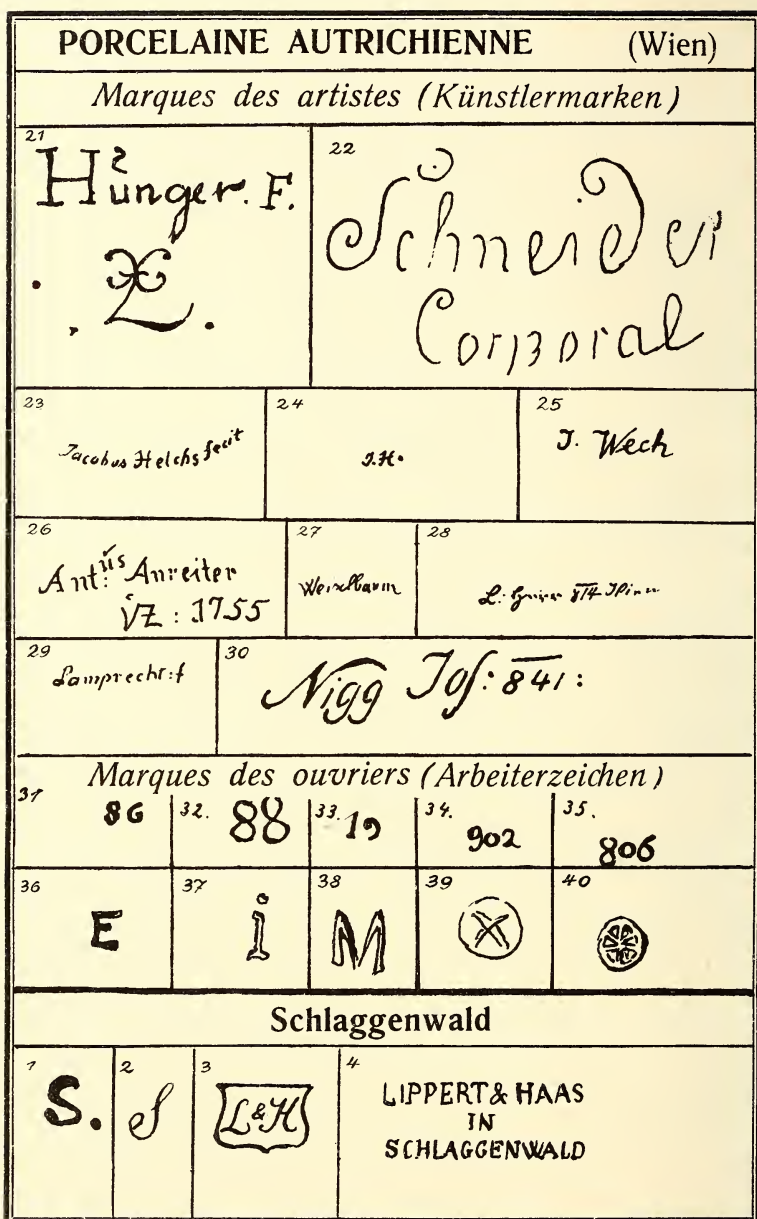 PORCELAINE AUTRICHIENNE (Wien)
Marques des artistes (Künstlermarken)
21
Hunger. F.
22
Schneider
Corporal
23
Jacobus Helchs fecit
24
J.H.
25
J. Wech
26
Ant:us Anreiter
VZ : 1755
27
28
L.
29
Lamprecht:f
30
Nigg Jos: 841:
Marques des ouvriers (Arbeiterzeichen)
31
86
32.
88
33.
19
34.
902
35.
806
36
E
37
i
38
M
39
40
Schlaggenwald
1
S.
2
S
3
L&H
4
LIPPERT & HAAS
IN
SCHLAGGENWALD